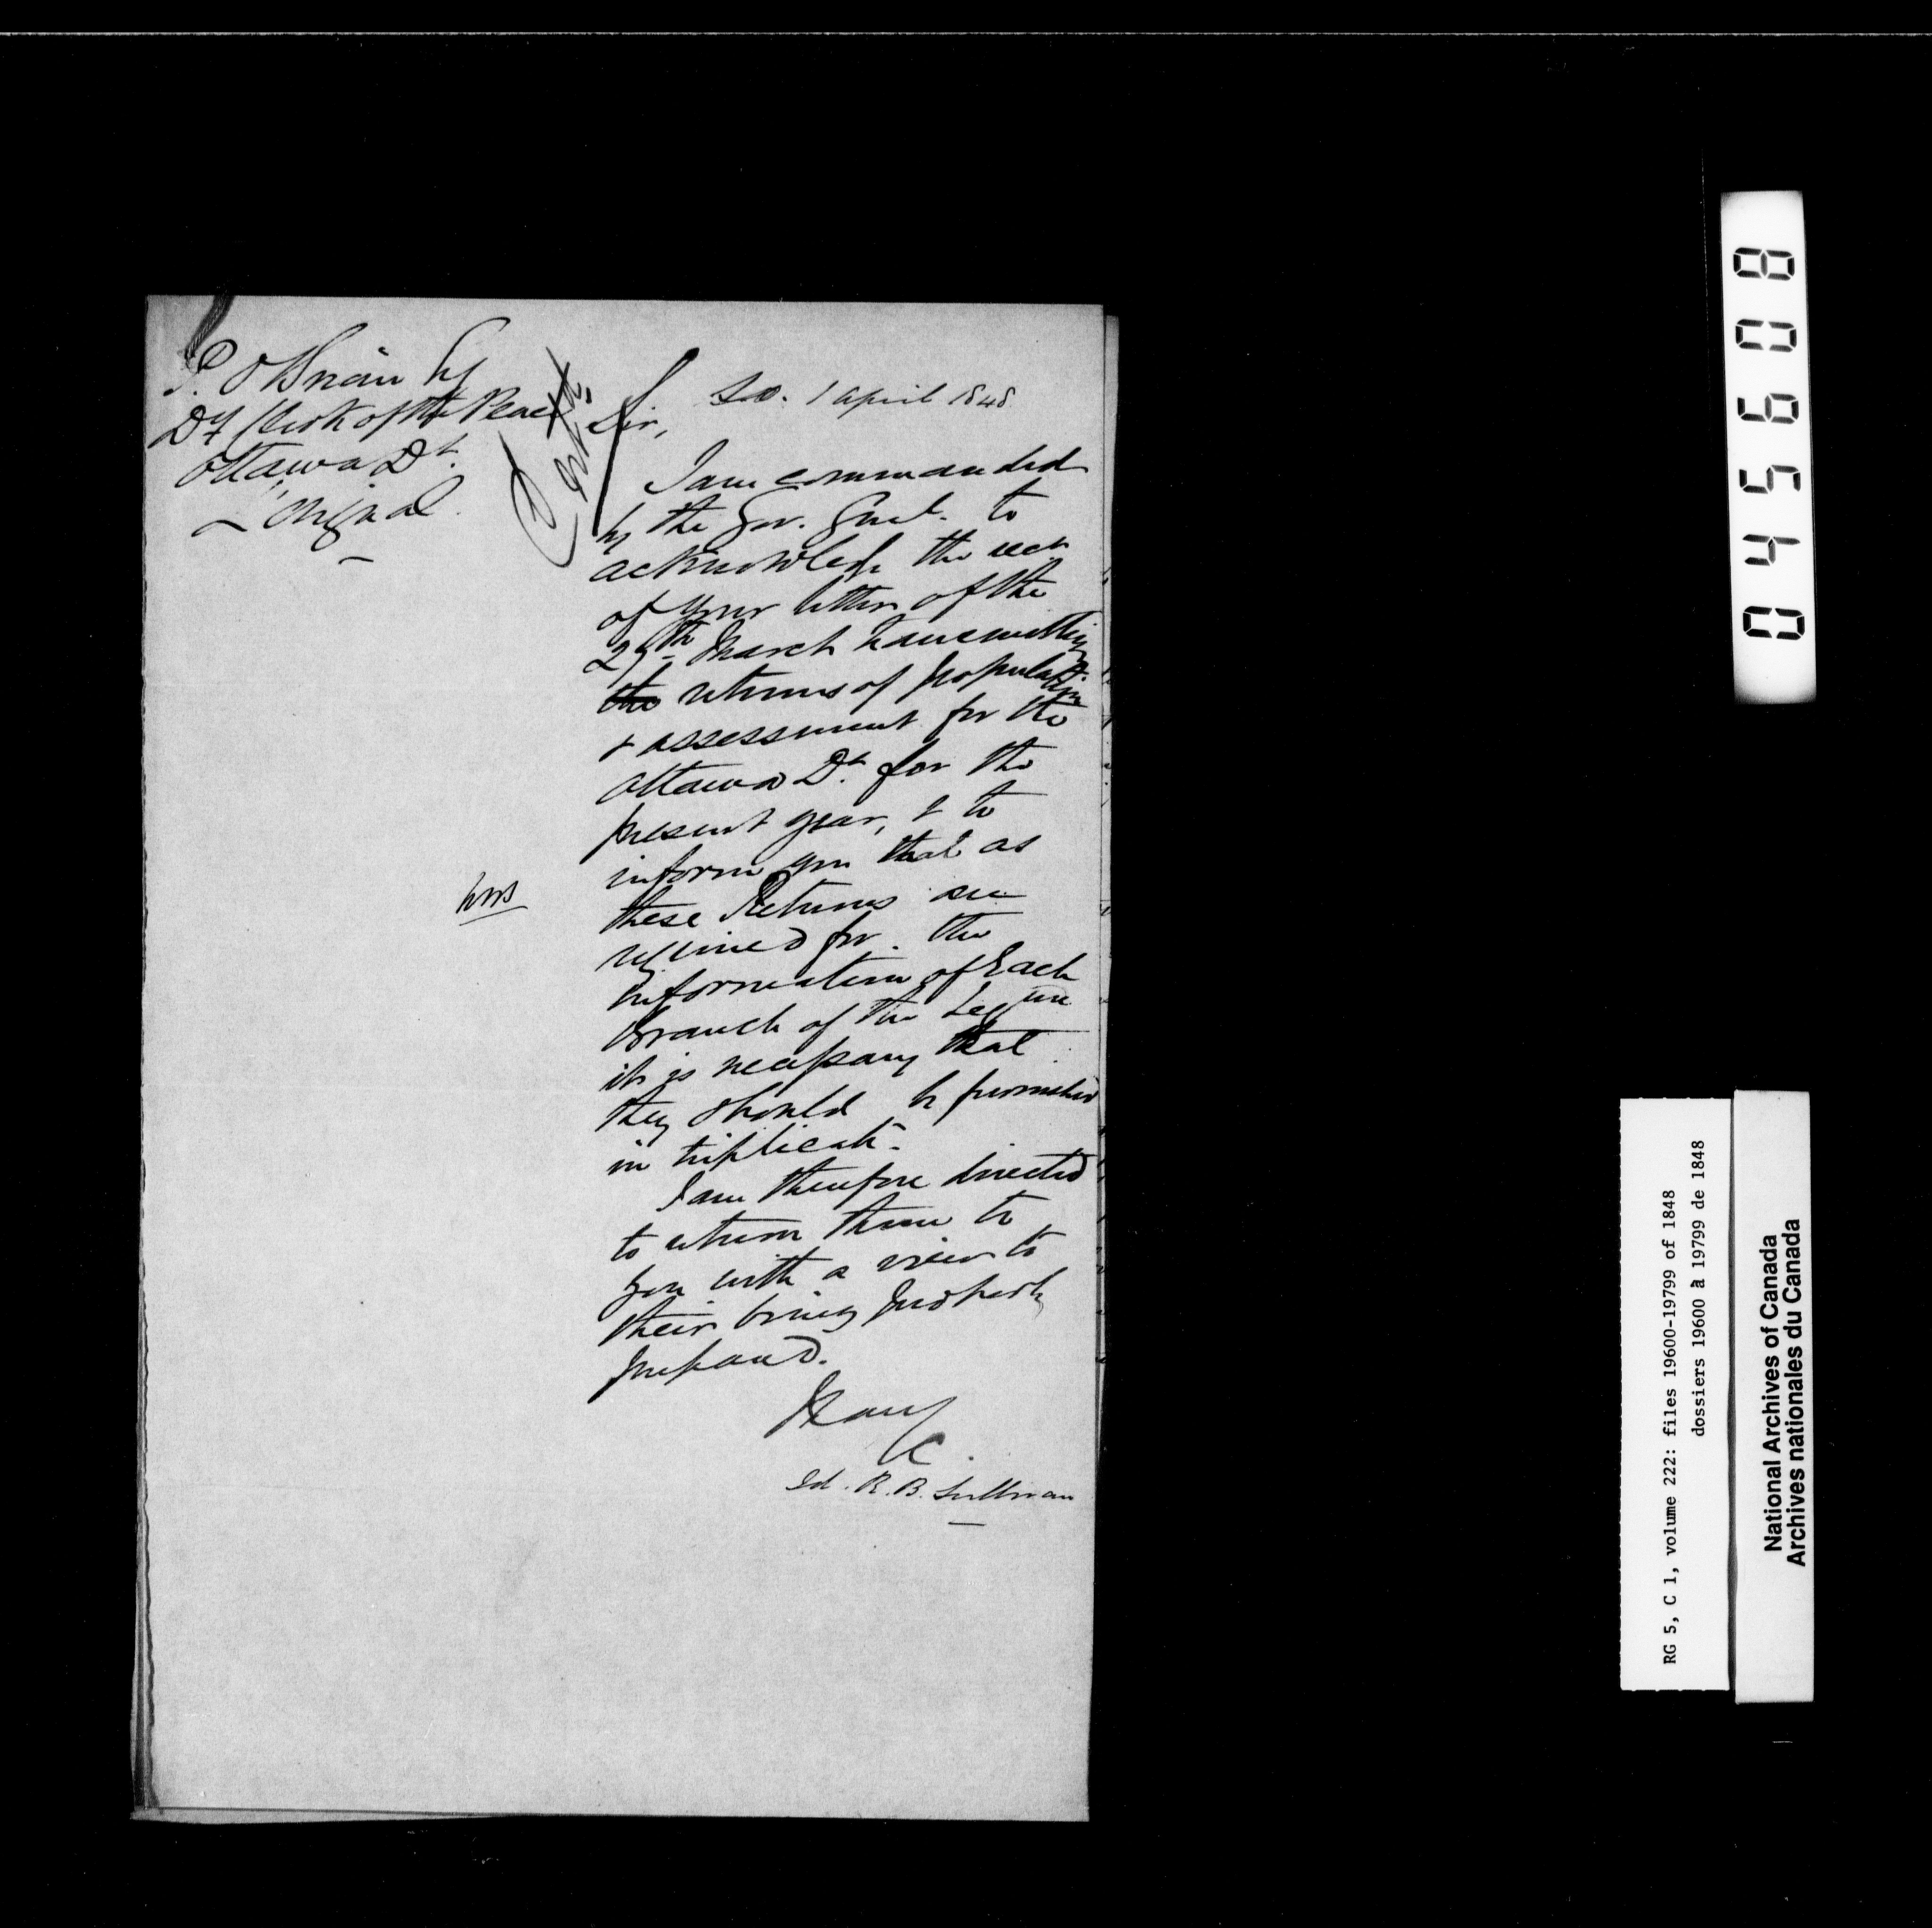 P. O'Brian Esq
Dy Clerk of the Peace
Ottawa Dt.
L'Orignal
Entd
S.O. 1 April 1848
Sir,
I am commanded
by the Gov. Genl. to
acknowledge the rect
of your letter of the
27th March transmitting
the returns of population
& assessment for the
Ottawa Dt. for the
present year, & to
inform you that as
these Returns are
required for the
information of Each
Branch of the Legure
it is necessary that
they should be furnished
in triplicate.
I am therefore directed
to return them to
you with a view to
their being properly
prepared.
I have
&c.
Sd. R. B. Sullivan
045608
RG 5, C 1, volume 222: files 19600-19799 of 1848
dossiers 19600 à 19799 de 1848
National Archives of Canada
Archives nationales du Canada